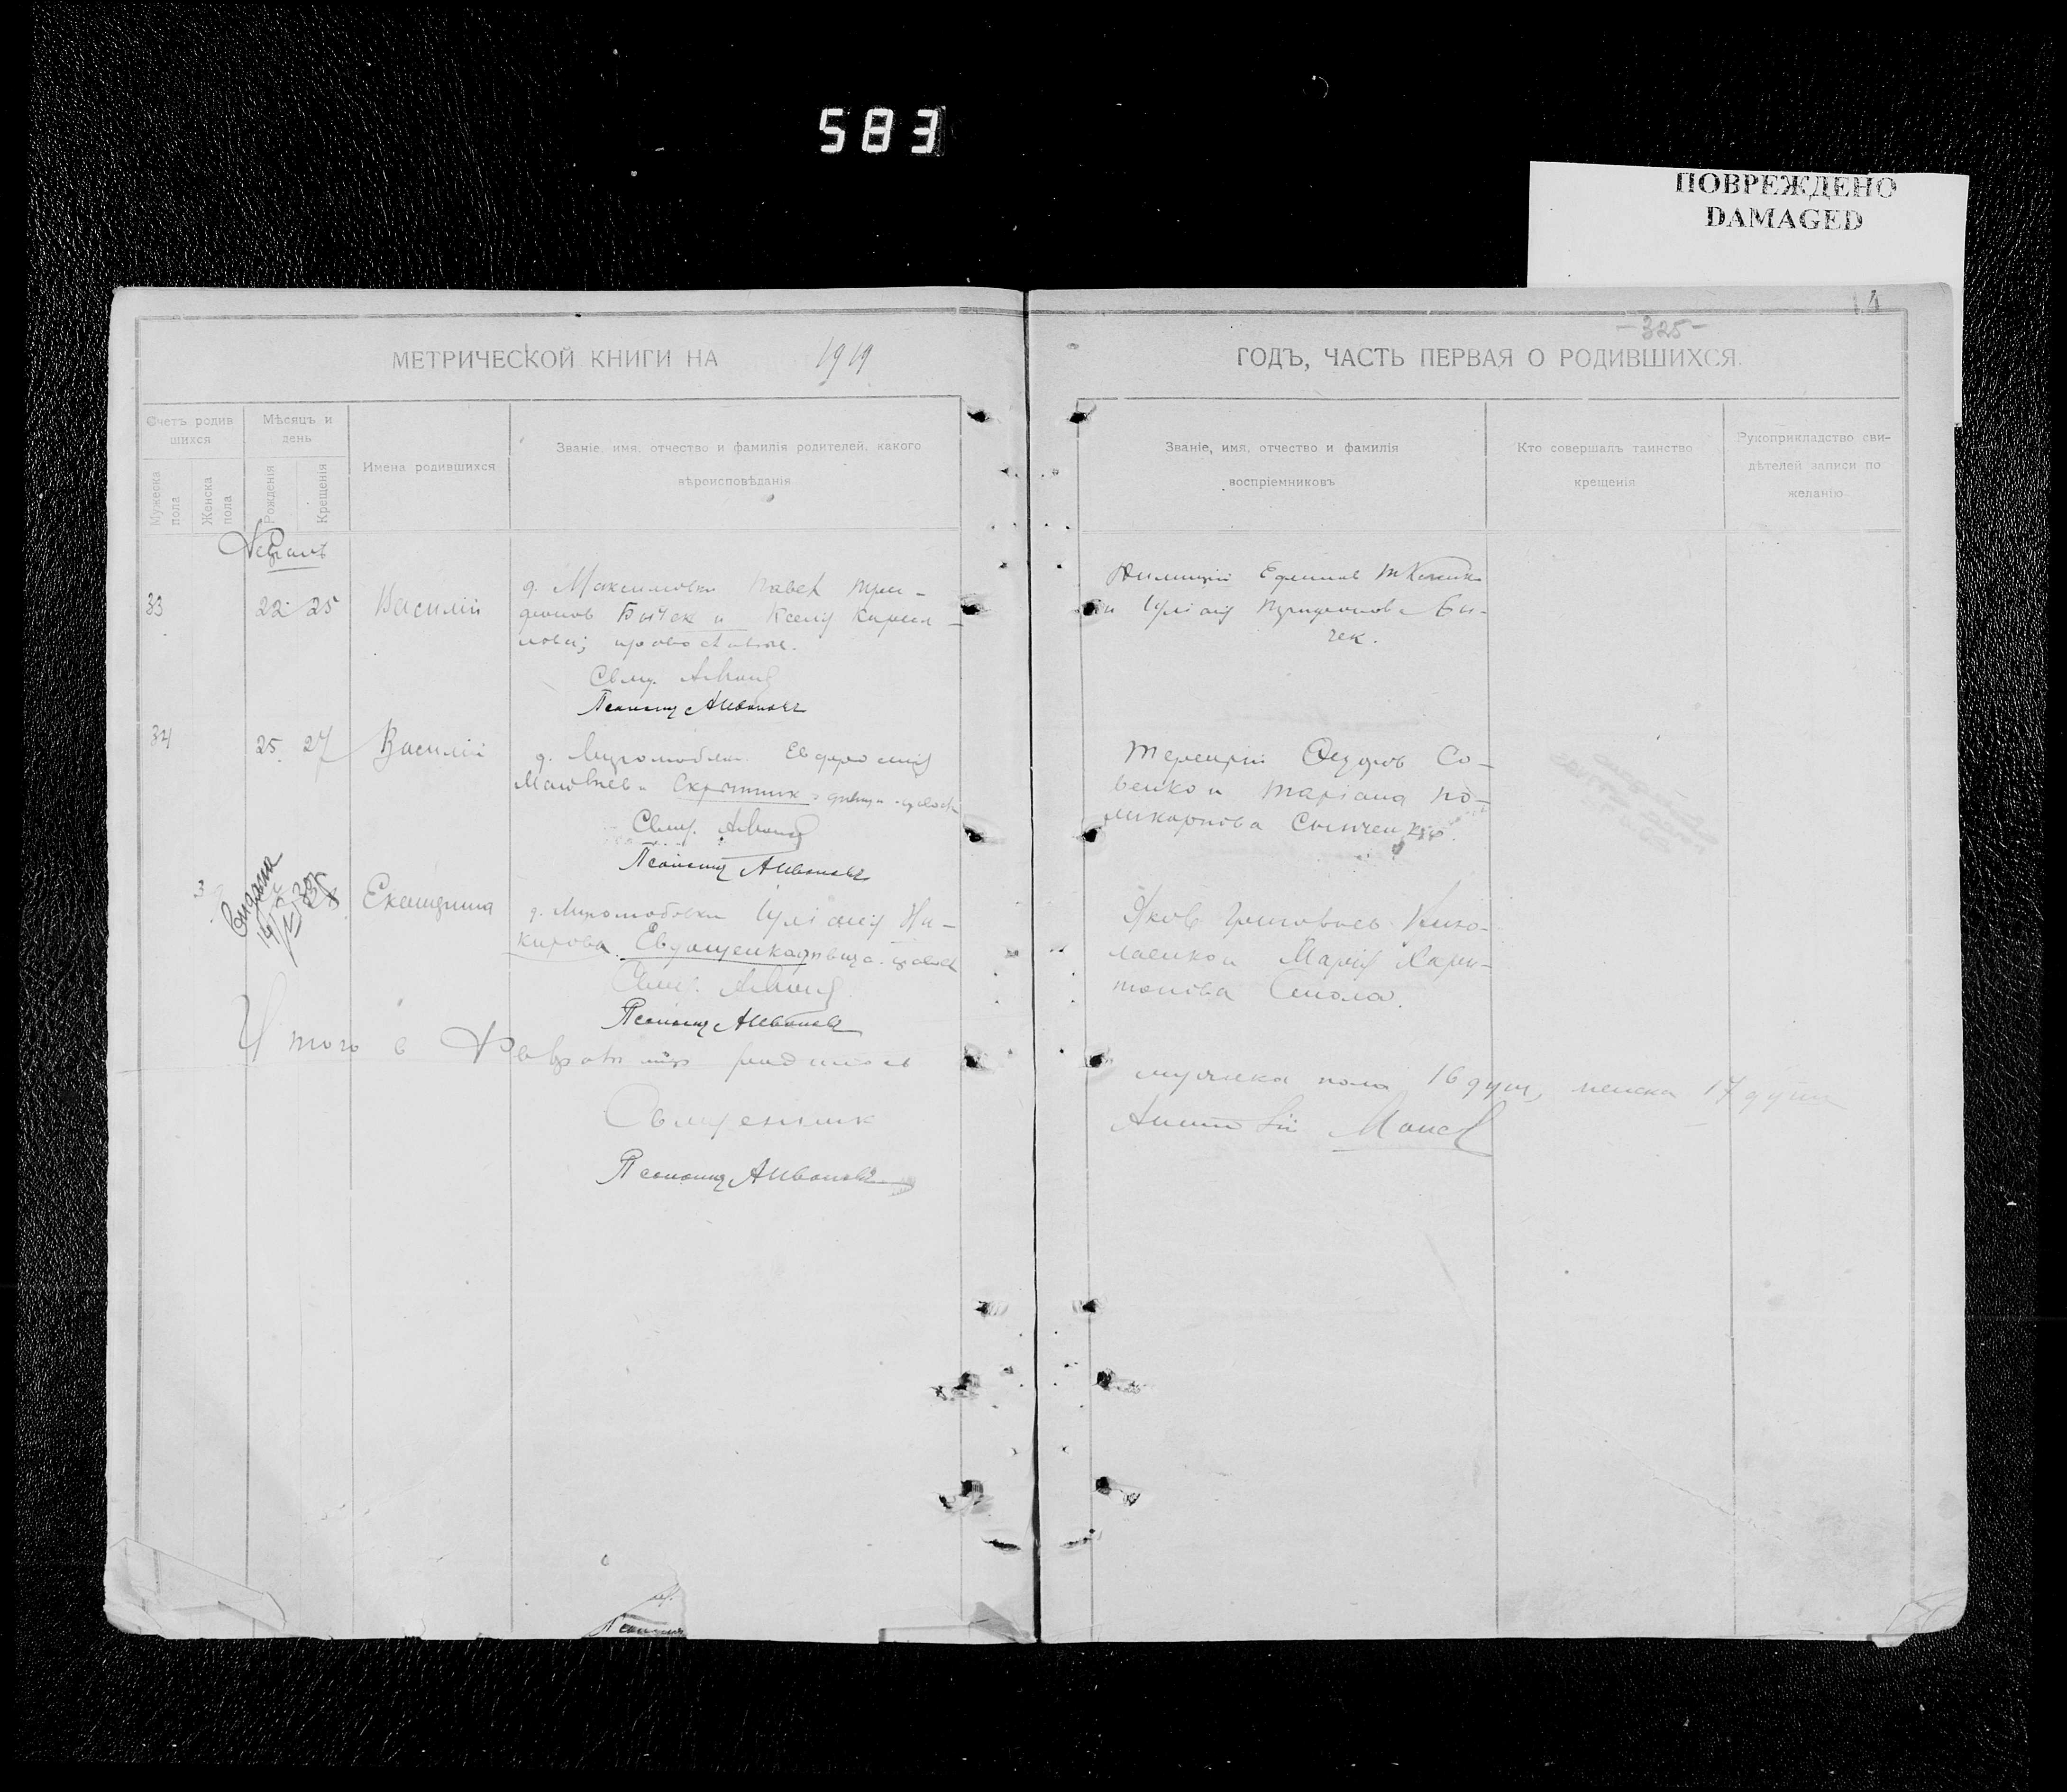 583
ПОВРЕЖДЕНО
DAMAGED
-325-
МЕТРИЧЕСКОЙ КНИГИ НА 1919
ГОДЪ, ЧАСТЬ ПЕРВАЯ О РОДИВШИХСЯ.
Счетъ родив
шихся
Мужеска пола
Женска пола
Мѣсяцъ и
день
Рожденія
Крещенія
Имена родившихся
Званіе, имя, отчество и фамилія родителей, какого
вѣроисповѣданія
Званіе, имя, отчество и фамилія
воспріемниковъ
Кто совершалъ таинство
крещенія
Рукоприкладство сви-
дѣтелей записи по
желанію
33
22 25
Василій
д. Максимовки Павел Три-
фонов Бычек и Ксенія Кирил-
лова; православные.
Свящ.
Псаломщ АИвановъ
Ефимов
и Іуліанія Трифонова Бы-
чек.
34
25 27
Василій
д. Евфросинія
Матвѣева Скрыпник
Свящ.
Псаломщ АИвановъ
Терентій Федоров Со-
венко и Маріана По-
ликарпова
Екатерина
д. Миролюбовки Іуліанія Ни-
кифорова Евдощенко дѣвица
Свящ.
Псаломщ АИвановъ
Яков Григорьев Нико-
лаенко и Марія Хари-
тонова
Итого в Феврале родилось
мужеска пола 16 душ, женска 17 душ
Священник
Псаломщ АИвановъ